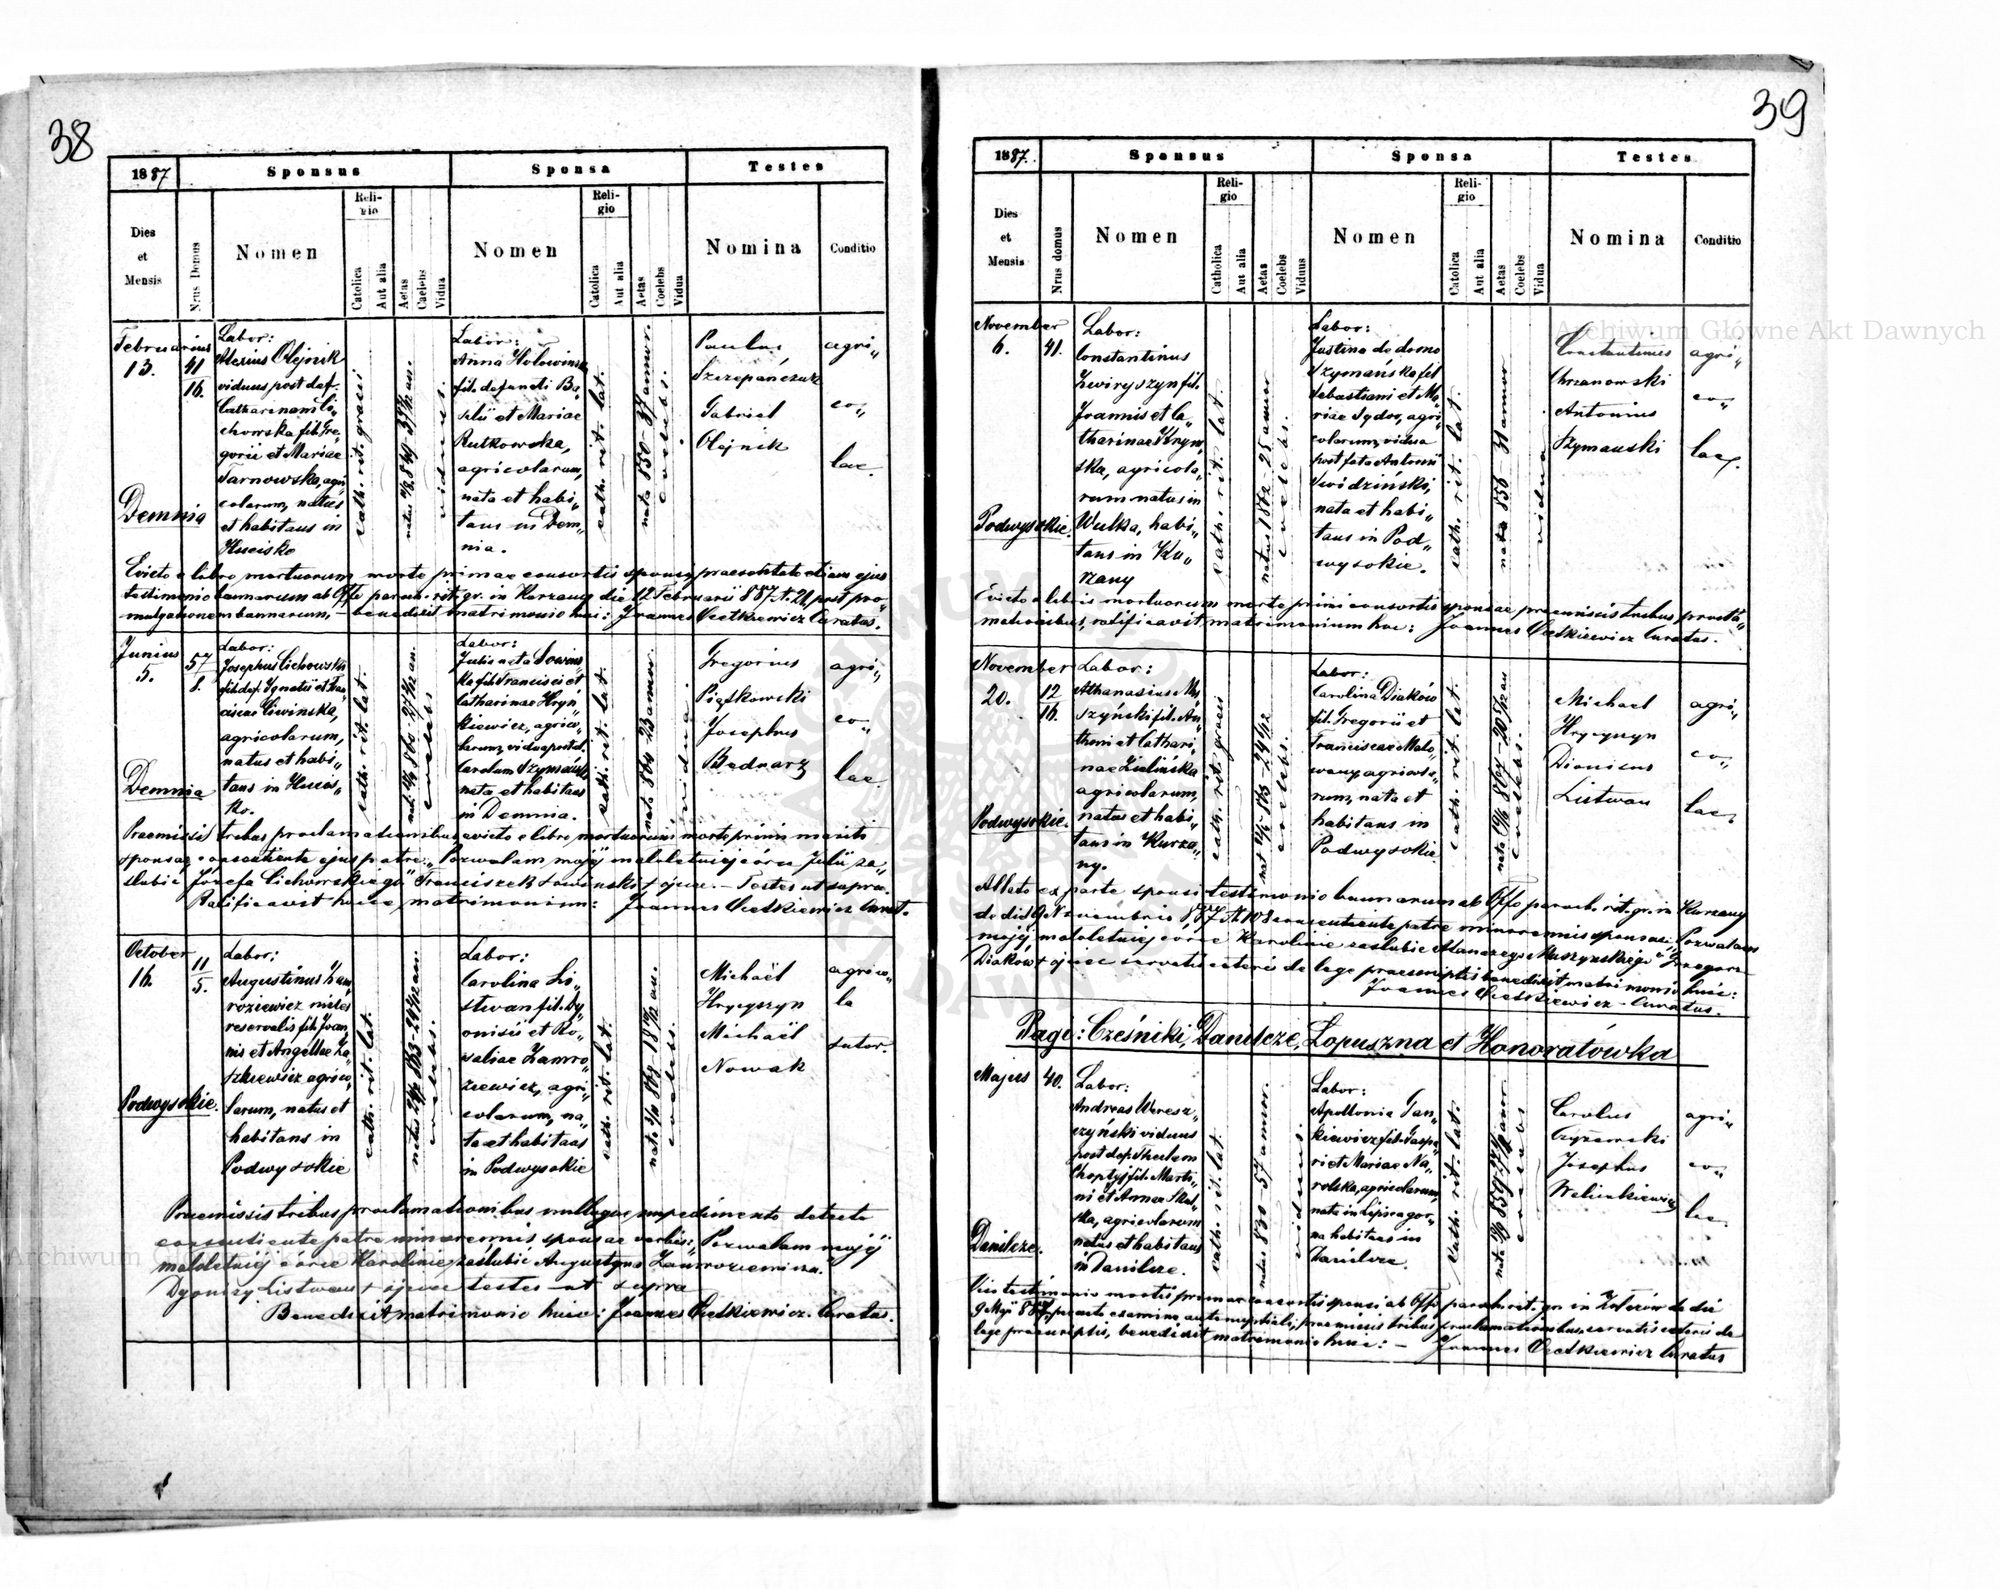 38
1887
Sponsus
Sponsa
Testes
Dies
et
Mensis
Nrus Domus
Nomen
Reli-
gio
Catolica
Aut alia
Aetas
Caelebs
Vidua
Nomen
Reli-
gio
Catolica
Aut alia
Aetas
Coelebs
Vidua
Nomina
Conditio
Februarius
13.
41
16.
Demnia
Labor:
Alexius Olejnik
viduus post def.
Catharinam Ci„
chowska fil. Gre„
gorii et Mariae
Tarnowska, agri
colarum, natus
et habitans in
Hucisko
cath. rit. graeci
viduus.
Labor:
Anna Hołowinska
fil. defuncti Ba„
silii et Mariae
Rutkowska,
agricolarum,
nata et habi„
tans in Dem„
nia.
cath. rit. lat.
nata 850-37 annor.
coelebs.
Paulus
Szczepańczuk
Gabriel
Olejnik
agri„
co„
lae.
Evicto e libro mortuorum morte primae consortis sponsi, praesentato etiam ejus
testimonio bannorum ab Offo paroch. rit. gr. in Kurzany die 12 Februarii 887 N. 21, post pro„
mulgationem bannorum, – benedixit matrimonio huic: Joannes Cietkiewicz Curatus.
Junius
5.
57
8.
Demnia
Labor:
Josephus Cichowski
fil. def. Ignatii et Fran
ciscae Liwinska,
agricolarum,
natus et habi„
tans in Hucis„
ko.
cath. rit. lat.
coelebs
Labor:
Julia nata Sowins„
ka fil. Francisci et
Catharinae Hryn„
kiewicz, agrico„
larum, vidua post d.
Carolum Szymański
nata et habitans
in Demnia.
cath. rit. lat.
nata 864 23 annor.
vidua
Gregorius
Piątkowski
Josephus
Bednarz
agri„
co„
lae.
Praemissis tribus proclamationibus, evicto e libro mortuorum morte primi mariti
sponsae, consentiente ejus patre: „Pozwalam mojéj małoletniéj córce Julii za„
ślubić Józefa Cichowskiego" Franciszek Sowiński † ojciec. – Testes ut supra.
Ratificavit huic matrimonium: Joannes Cietkiewicz Curat.
October
16.
11
5.
Podwysokie.
Labor:
Augustinus Zam„
roziewicz miles
reservalis fil. Joan„
nis et Angellae Ła„
szkiewicz, agrico„
larum, natus et
habitans in
Podwysokie
cath. rit. lat.
coelebs.
Labor:
Carolina Li„
stwan fil. Dy„
onisii et Ro„
saliae Zamro„
ziewicz, agri„
colarum, na„
ta et habitans
in Podwysokie
cath. rit. lat.
coelebs.
Michaël
Hrycyszyn
Michaël
Nowak
agrico„
la
sutor.
Praemissis tribus proclamationibus nulloque impedimento detecto
consentiente patre minorennis sponsae verbis: „Pozwalam mojéj
małoletniéj córce Karolinie zaślubić Augustyna Zamroziewicza."
Dyonizy Listwan † ojciec testes ut supra
Benedixit matrimonio huic: Joannes Cietkiewicz. Curatus.
39
1887.
Sponsus
Sponsa
Testes
Dies
et
Mensis
Nrus domus
Nomen
Reli-
gio
Catholica
Aut alia
Aetas
Coelebs
Viduus
Nomen
Reli-
gio
Catolica
Aut alia
Aetas
Coelebs
Vidua
Nomina
Conditio
November
6.
41.
Podwysokie.
Labor:
Constantinus
Zwiryszyn fil.
Joannis et Ca„
tharinae Kryw„
ska, agricola„
rum natus in
Wulka, habi„
tans in Ku„
rzany
cath. rit. lat.
natus 1862-25 annor
coelebs.
Labor:
Justina de domo
Szymańska fil
Sebastiani et Ma„
riae Sydor, agri„
colarum, vidua
post fata Antonii
Swidzinski,
nata et habi„
tans in Pod„
wysokie.
cath. rit. lat.
nata 856-31 annor
vidua
Constantinus
Chrzanowski
Antonius
Szymanski
agri„
co„
lae.
Evicto e libris mortuorum morte primi consortis sponsae praemissis tribus procla„
mationibus, ratificavit matrimonium hoc: Joannes Cietkiewicz Curatus.
November
20.
12
16.
Podwysokie.
Labor:
Athanasius Mu„
szyński fil. An„
thoni et Cathari„
nae Zielińska
agricolarum,
natus et habi„
tans in Kurza„
ny.
cath. rit. graeci
coelebs.
Labor:
Carolina Diaków
fil. Gregorii et
Franciscae Malo„
wany agricola„
rum, nata et
habitans in
Podwysokie
cath. rit. lat.
coelebs.
Michael
Hrycyszyn
Dionisius
Listwan
agri„
co„
lae.
Allato ex parte sponsi testimonio bannorum ab Offo paroch. rit. gr. in Kurzany
de die 9 Novembris 887 N. 108 consentiente patre minorennis sponsae: „Pozwalam
mojéj małoletniéj córce Karolinie zaślubić Atanazego Muszynskiego" Grzegorz
Diaków † ojciec servatis ceteris de lege praescriptis benedixit matrimonio huic:
Joannes Cietkiewicz - Curatus.
Pagi: Cześniki, Danilcze, Łopuszna et Honoratówka
Majus
40.
Danilcze.
Labor:
Andreas Weresz„
czyński viduus
post def. Theclam
Choptyj fil. Marti„
ni et Annae Skal„
ska, agricolarum
natus et habitans
in Danilcze.
cath. rit. lat.
natus 830-57 annor
viduus.
Labor:
Apollonia Jan„
kiewicz fil. Gaspa„
ri et Mariae Na„
rolska, agricolarum,
nata in Lipica gor„
na habitans in
Danilcze.
cath. rit. lat.
coelebs
Carolus
Czyżewski
Josephus
Weliczkiewicz
agri„
co„
lae
Viso testimonio mortis primae consortis sponsi ab Offo paroch. rit. gr. in Kolezów de die
9 Maji 887, peracto examine antenuptiali, praemissis tribus proclamationibus, servatis ceteris de
lege praescriptis, benedixit matrimonio huic: – Joannes Cietkiewicz Curatus
Archiwum Główne Akt Dawnych
Archiwum Główne Akt Dawnych